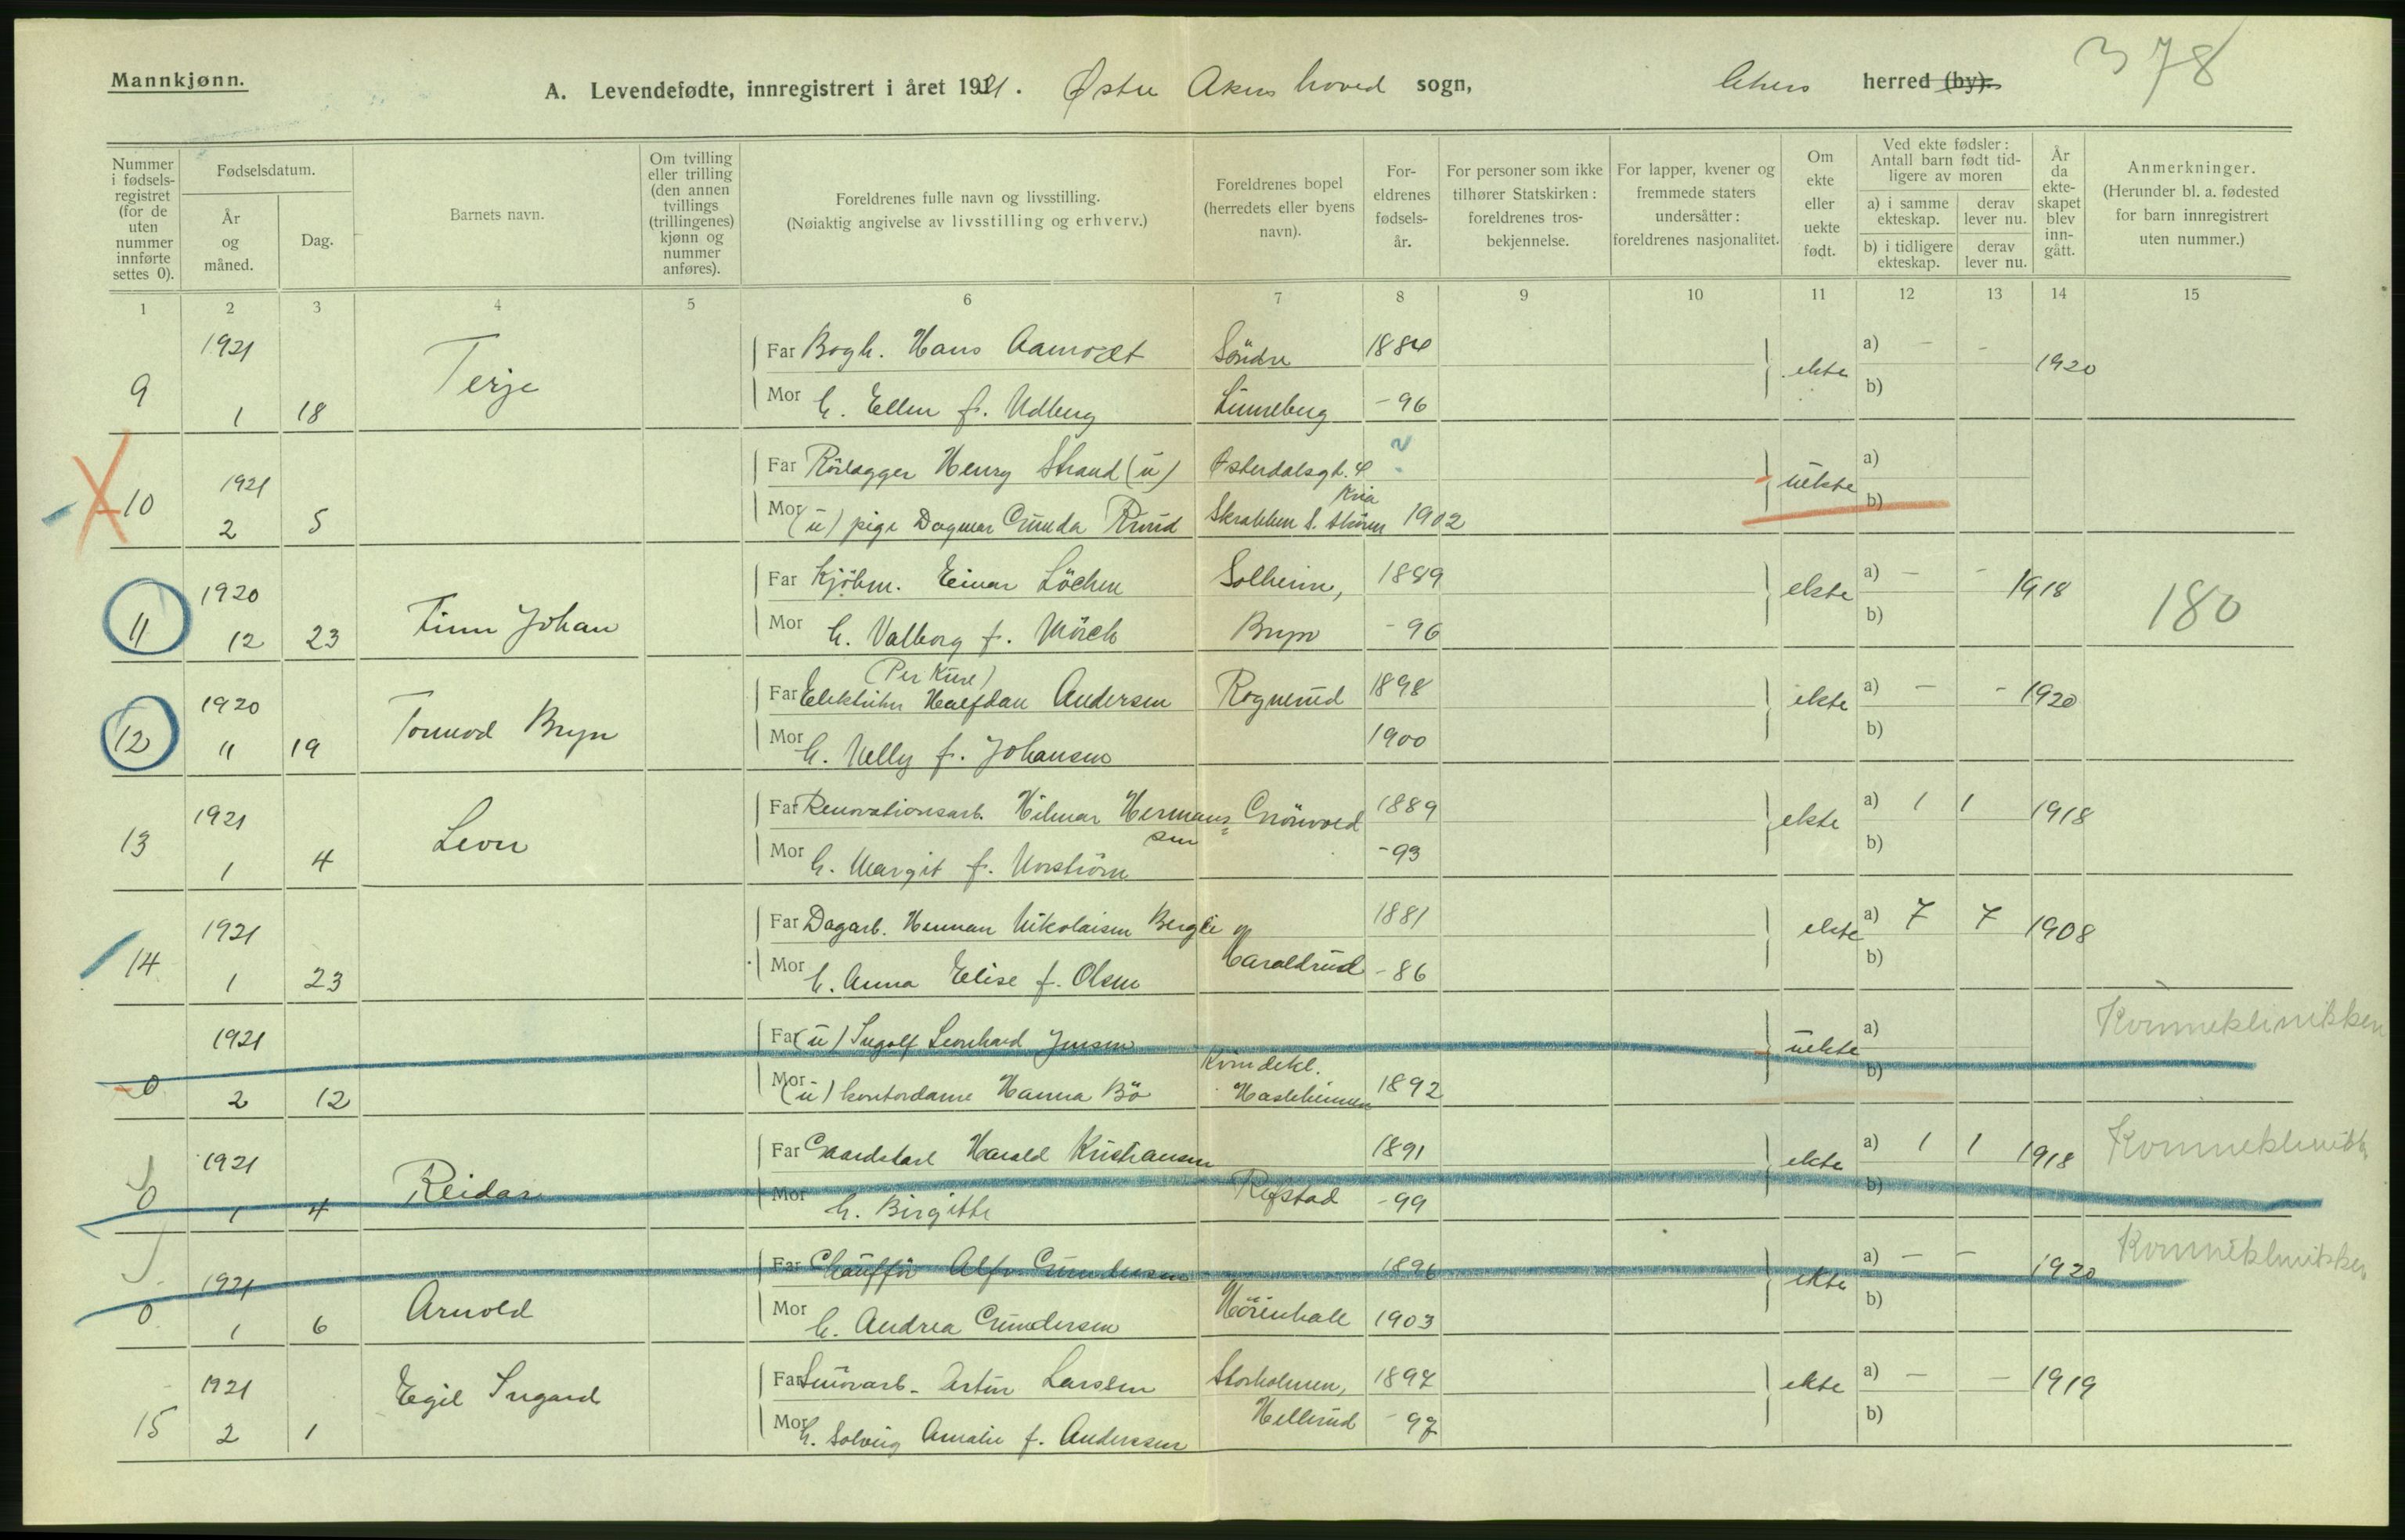 Mannkjønn.
A. Levendefødte, innregistrert i året 1921. Østre Akers hoved sogn, Akers herred (by).
378
Nummer i fødselsregistret (for de uten nummer innførte settes 0).
Fødselsdatum.
År og måned.
Dag.
Barnets navn.
Om tvilling eller trilling (den annen tvillings (trillingenes) kjønn og nummer anføres).
Foreldrenes fulle navn og livsstilling.
(Nøiaktig angivelse av livsstilling og erhverv.)
Foreldrenes bopel (herredets eller byens navn).
Foreldrenes fødselsår.
For personer som ikke tilhører Statskirken: foreldrenes trosbekjennelse.
For lapper, kvener og fremmede staters undersåtter: foreldrenes nasjonalitet.
Om ekte eller uekte født.
Ved ekte fødsler: Antall barn født tidligere av moren
a) i samme ekteskap.
derav lever nu.
b) i tidligere ekteskap.
derav lever nu.
År da ekteskapet blev inngått.
Anmerkninger.
(Herunder bl. a. fødested for barn innregistrert uten nummer.)
1 2 3 4 5 6 7 8 9 10 11 12 13 14 15
9 1921 1 18 Terje
Far Bogh. Hans Aamodt Söndre 1884 ekte a) - - 1920
Mor h. Ellen f. Udberg Linneberg -96 b)
10 1921 2 5
Far Rörlægger Henry Strand (u) Østerdalsgt. 4 Kria ? uekte a)
Mor (u) pige Dagmar Gunda Ruud 1902 b)
11 1920 12 23 Finn Johan
Far Kjöbm. Einar Löchen Solheim, 1889 ekte a) - - 1918 180
Mor h. Valborg f. Mörch Bryn -96 b)
12 1920 11 19 Tormod Bryn
(Per Kure)
Far Elektriker Halfdan Andersen Rognerud 1898 ekte a) - - 1920
Mor h. Nelly f. Johansen 1900 b)
13 1921 1 4 Leon
Far Renovationsarb. Hilmar Hermansen Grönvold 1889 ekte a) 1 1 1918
Mor h. Margit f. Norström -93 b)
14 1921 1 23
Far Dagarb. Herman Nikolaisen Bergli 1881 ekte a) 7 7 1908
Mor h. Anna Elise f. Olsen Haraldrud -86 b)
0 1921 2 12
Far (u) Ingolf Leonhard Jensen uekte a) Kvinneklinikken
Mor (u) kontordame Hanna Bö Kvindekl. Hasleheimen 1892 b)
0 1921 1 4 Reidar
Far Gaardskarl Harald Kristiansen 1891 ekte a) 1 1 1918 Kvinneklinikk.
Mor h. Birgitte Refstad -99 b)
0 1921 1 6 Arnold
Far Chaufför Alfr. Gundersen 1896 ekte a) - - 1920 Kvinneklinikken
Mor h. Andrea Gundersen 1903 b)
15 1921 2 1 Egil Ingard
Far Artur Larsen Storholmen, 1897 ekte a) - - 1919
Mor h. Solveig Amalie f. Anderssen Hellerud -97 b)